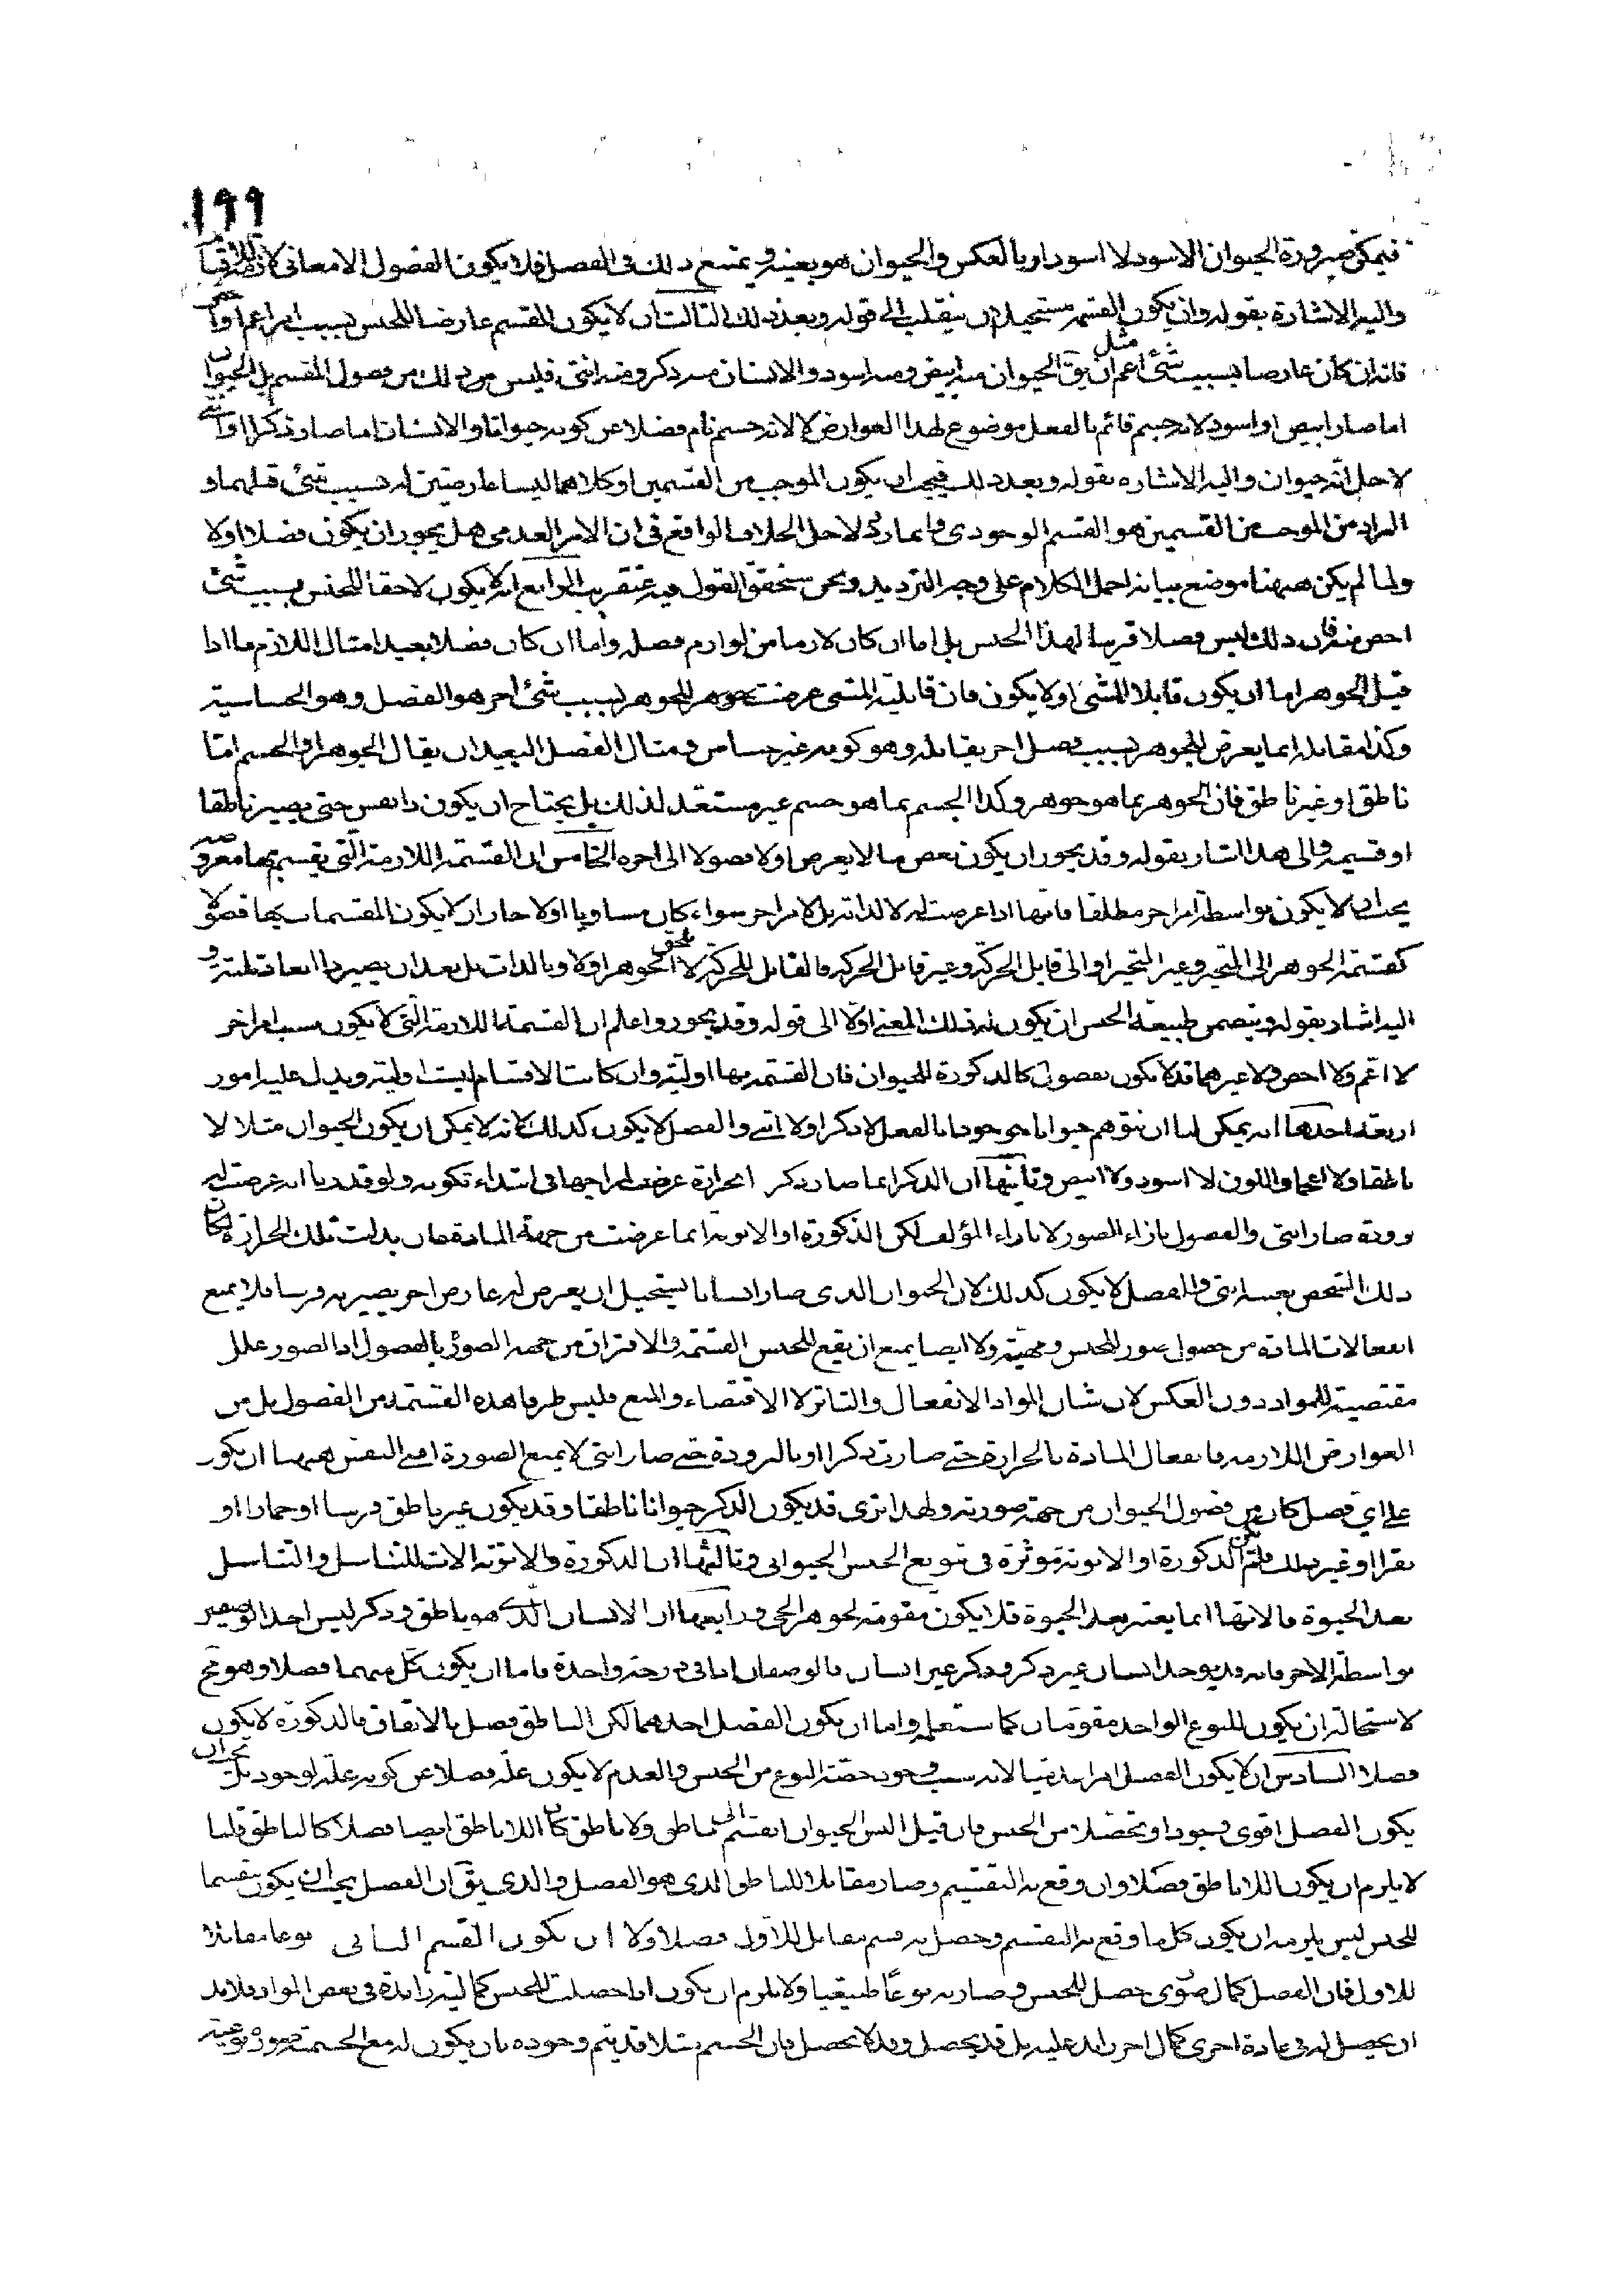 ١٩٩
فيمكن صيرورة الحيوان الاسود لا اسود او بالعكس والحيوان هو بعينه ويمتنع ذلك فى الفصل فلا يكون الفصول الا معانى لازمة
واليه الاشارة بقوله وان يكون القسمة مستحيلة ان ينقلب الى قوله وبعد ذلك الثالث ان لا يكون المقسم عارضا للجنس بسبب امر اعم او اخص
فانه ان كان عارضا بسبب شئ اعم مثل ان يق الحيوان منه ابيض ومنه اسود والانسان منه ذكر ومنه انثى فليس من ذلك من فصول المقسم بل الحيوان
اما صار ابيض او اسود لانه جسم قائم بالفعل موضوع لهذا العوارض لا لانه جسم نام فضلا عن كونه حيوانا والانسان اما صار ذكرا او انثى
لاجل انه حيوان واليه الاشاره بقوله وبعد ذلك فيجب ان يكون الموجب من القسمين او كلاهما ليسا عارضين له بسبب شئ قبلهما و
المراد من الموجب من القسمين هو القسم الوجودى وانما ردد لاجل الخلاف الواقع فى ان الامر العدمى هل يجوز ان يكون فصلا او لا
ولما لم يكن ههنا موضع بيانه احمل الكلام على وجه الترديد ونحن سنحقق القول فيه عنقريب الرابع ان لا يكون لاحقا للجنس بسبب شئ
اخص منه فان ذلك ليس فصلا قريبا لهذا الجنس بل اما ان كان لازما من لوازم فصله واما ان كان فصلا بعيدا مثال اللازم ما اذا
قيل الجوهر اما ان يكون قابلا للمشى او لا يكون فان قابلية المشى عرضت للجوهر بسبب شئ اخر هو الفصل وهو الحساسية
وكذا مقابله انما يعرض للجوهر بسبب فصل اخر يقابله وهو كونه غير حساس ومثال الفصل البعيد ان يقال الجوهر او الجسم اما
ناطق او غير ناطق فان الجوهر بما هو جوهر وكذا الجسم بما هو جسم غير مستعد لذلك بل يحتاج ان يكون ذا نفس حتى يصير ناطقا
او قسيمه والى هذا اشار بقوله وقد يجوز ان يكون بعض ما لا يعرض اولا فصولا الى اخره الخامس ان القسمة اللازمة التى يقسم بها معروضه
يجب ان لا يكون بواسطة امر اخر مطلقا فانها اذا عرضت له لا لذاته بل لامر اخر سواء كان مساويا او لا جاز ان لا يكون المقسمات بها فصولا
كقسمة الجوهر الى المتحيز وغير المتحيز او الى قابل الحركة وغير قابل الحركة فالقابل للحركة لا يلحق الجوهر اولا وبالذات بل بعد ان يصير ذا ابعاد ثلثة و
اليه اشار بقوله ويتضمن طبيعة الجنس ان يكون له ذلك المعنى اولا الى قوله وقد يجوز واعلم ان القسمة اللازمة التى لا يكون بسبب امر اخر
لا اعم ولا اخص ولا غيرهما قد لا يكون بفصول كالذكورة للحيوان فان القسمة بها اولية وان كانت الاقسام ليست اولية ويدل عليه امور
اربعة احدها انه يمكن لنا ان نتوهم حيوانا موجودا بالفعل لا ذكرا ولا انثى والفصل لا يكون كذلك لانه لا يمكن ان يكون الحيوان مثلا لا
ناطقا ولا اعجما واللون لا اسود ولا ابيض وثانيها ان الذكر انما صار ذكر الحرارة عرضت لمزاجها فى ابتداء تكونه ولو قدرنا انه عرضت له
برودة صار انثى والفصول بازاء الصور لا بازاء المؤلف لكن الذكورة او الانوثة انما عرضت من جهة المادة فان بدلت تلك الحرارة لكان
ذلك الشخص بعينه انثى والفصل لا يكون كذلك لان الحيوان الذى صار انسانا يستحيل ان يعرض له عارض اخر يصير به فرسا فلا يمنع
انفعالات المادة من حصول صور الجنس ومهيته ولا ايضا يمنع ان يقع للجنس القسمة والافتراق من جهة الصور بالفصول اذ الصور علل
مقتضية للمواد دون العكس لان شان المواد الانفعال والتاثر لا الاقتضاء والمنع فليس طرفا هذه القسمة من الفصول بل من
العوارض اللازمه فانفعال المادة بالحرارة حتى صارت ذكرا او بالبرودة حتى صار انثى لا يمنع الصورة اعنى النفس ههنا ان يكون
على اى فصل كان من فصول الحيوان من جهة صورته ولهذا ترى قد يكون الذكر حيوانا ناطقا وقد يكون غير ناطق فرسا او حمارا او
بقرا او غير ذلك فلم يكن الذكورة او الانوثة مؤثرة فى تنويع الجنس الحيوانى وثالثها ان الذكورة والانوثة الات للتناسل والتناسل
بعد الحيوة فالاتها انما يعتبر بعد الحيوة فلا يكون مقومة لجوهر الحى ورابعها ان الانسان الذى هو ناطق وذكر ليس احد الوصفين
بواسطة الاخر فانه قد يوجد انسان غير ذكر وذكر غير انسان فالوصفان اذا فى درجة واحدة فاما ان يكون كل منهما فصلا وهو مح
لاستحالة ان يكون للنوع الواحد مقومان كما ستعلم واما ان يكون الفصل احدهما لكن الناطق فصل بالاتفاق فالذكورة لا يكون
فصلا السادس ان لا يكون الفصل امرا عدميا لانه سبب وجود حصة النوع من الجنس والعدم لا يكون علة فضلا عن كونه علة لوجود بل يجب ان
يكون الفصل اقوى وجودا وتحصلا من الجنس فان قيل اليس الحيوان انقسم الى ناطق ولا ناطق كان اللاناطق ايضا فصلا كالناطق قلنا
لا يلزم ان يكون اللاناطق فصلا وان وقع به التقسيم وصار مقابلا للناطق الذى هو الفصل والذى يق ان الفصل يجب ان يكون مقسما
للجنس ليس يلزم منه ان يكون كل ما وقع به التقسيم وحصل به قسم مقابل للاول فصلا ولا ان يكون القسم الثانى نوعا مقابلا
للاول فان الفصل كمال صورى حصل للجنس وصار به نوعا طبيعيا ولا يلزم ان يكون اذا حصلت للجنس كمالية زايدة فى بعض المواد فلا بد
ان يحصل له فى مادة اخرى كمال اخر زايد عليه بل قد يحصل وقد لا يحصل فان الجسم مثلا قد يتم وجوده بان يكون له مع الجسمية صورة نوعية